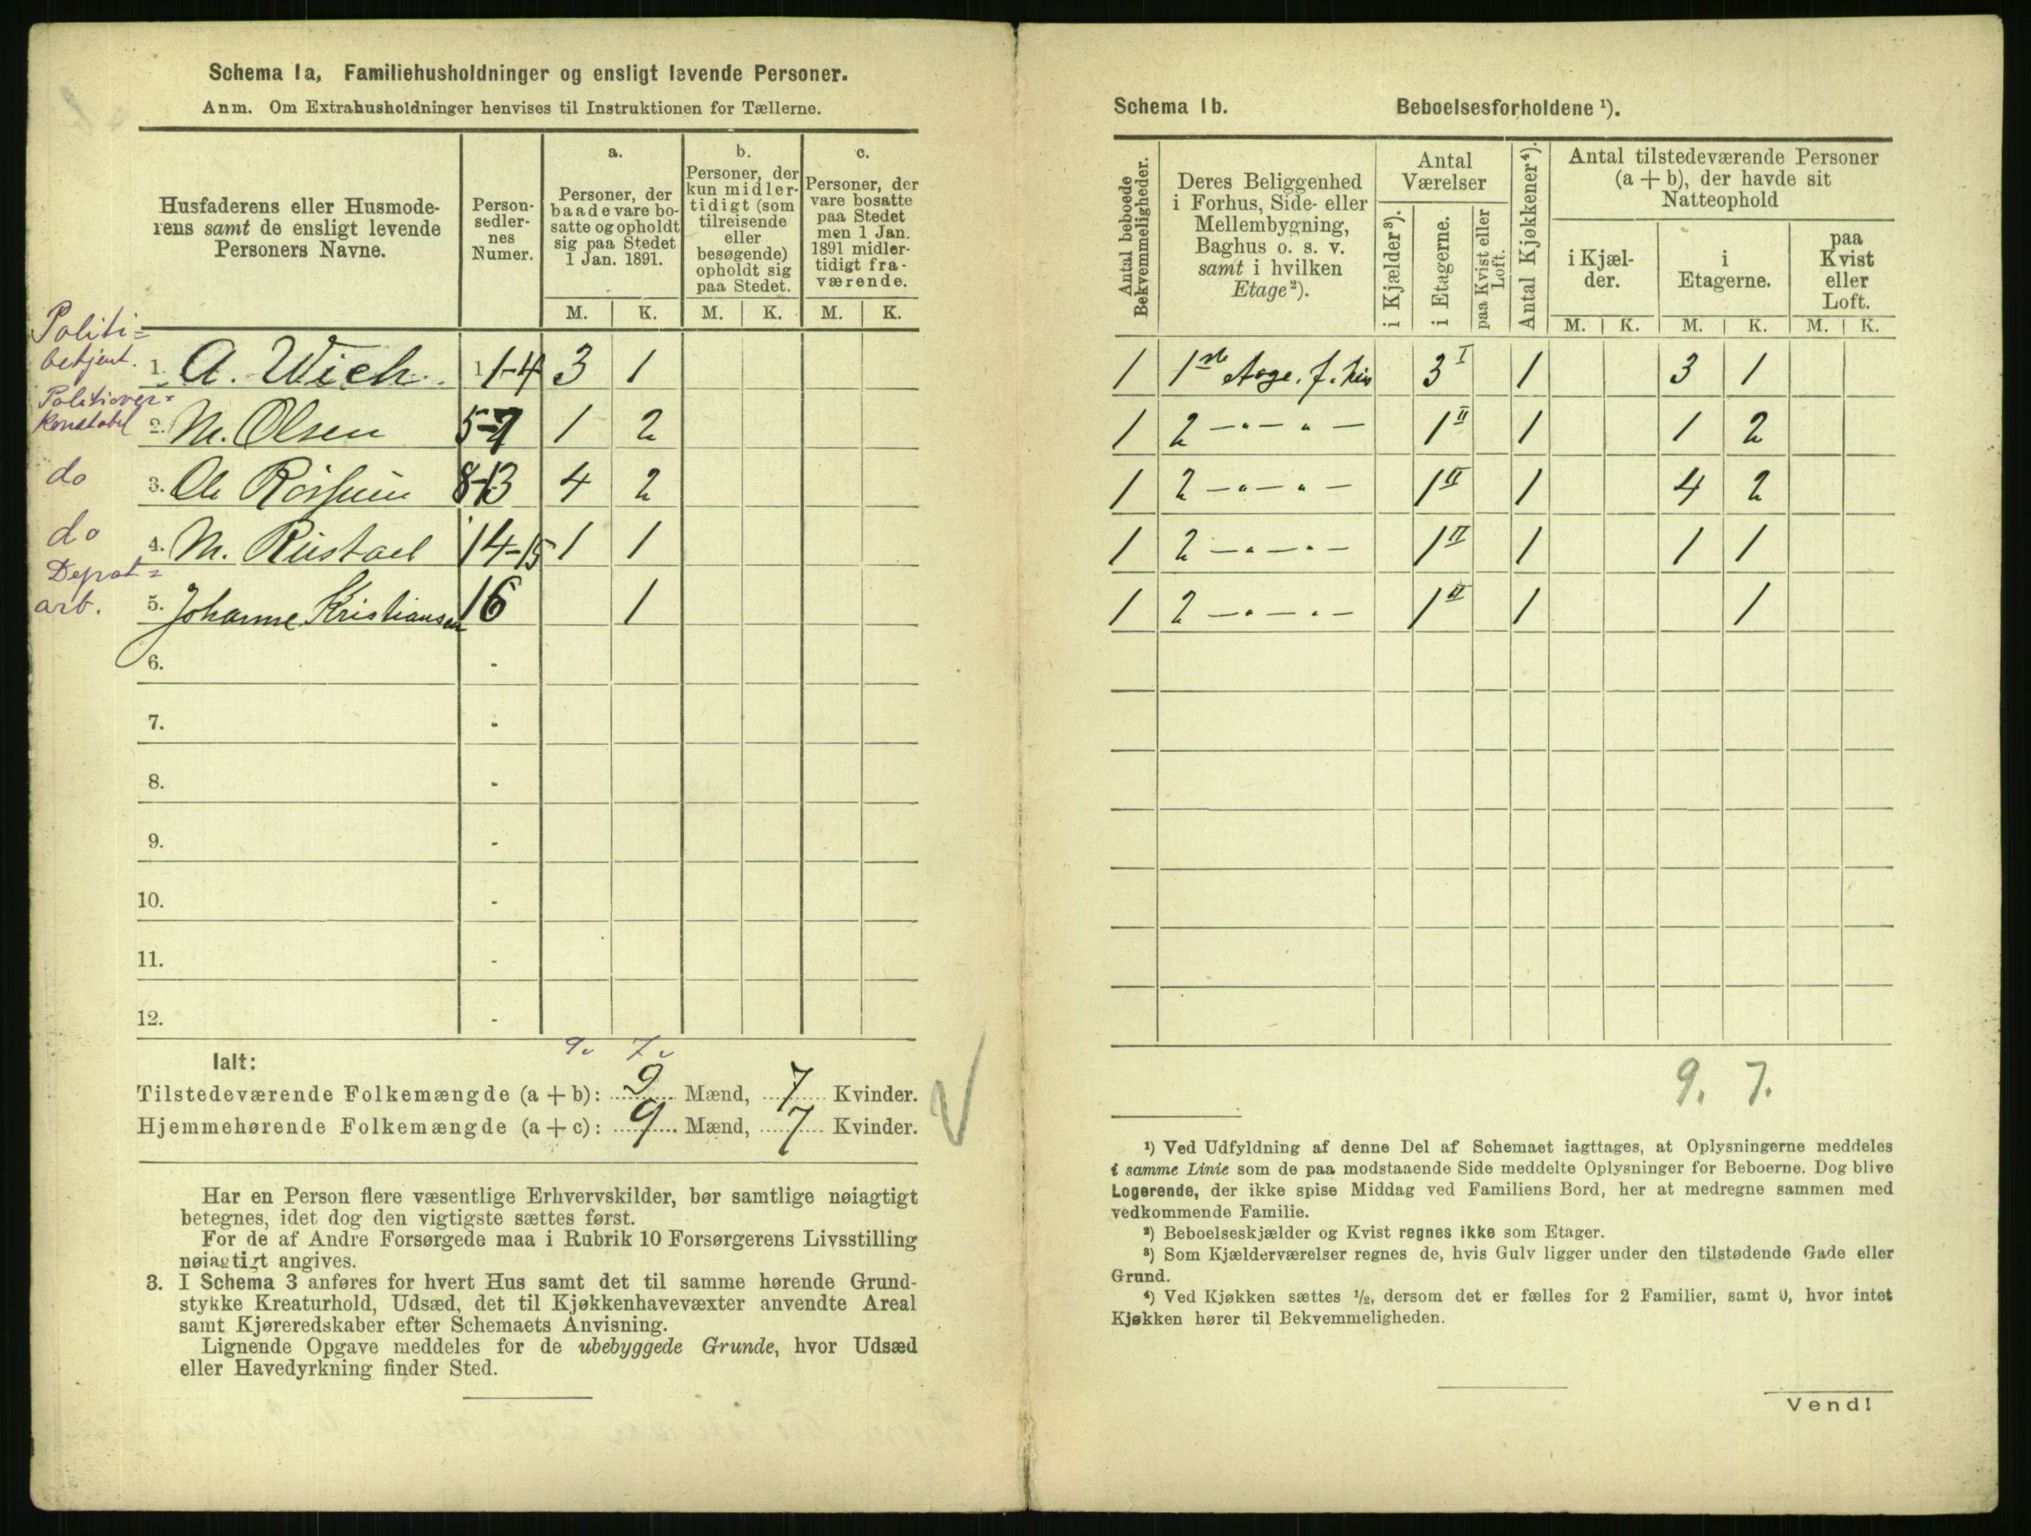 Schema 1a, Familiehusholdninger og ensligt levende Personer.
Anm. Om Extrahusholdninger henvises til Instruktionen for Tællerne.
Husfaderens eller Husmode-
rens samt de ensligt levende
Personers Navne.
Person-
sedler-
nes
Numer.
a.
Personer, der
baade vare bo-
satte og opholdt
sig paa Stedet
1 Jan. 1891.
b.
Personer, der
kun midler-
tidigt (som
tilreisende
eller
besøgende)
opholdt sig
paa Stedet.
c.
Personer, der
vare bosatte
paa Stedet
men 1 Jan.
1891 midler-
tidigt fra-
værende.
M. K. M. K. M. K.
Politi=
betjent.
1. A. Wich. 1 1-4 3 1
Politiover=
konstabel
2. M. Olsen 5-7 1 2
do
3. Ole 8-13 4 2
do
4. M. Rustad 14-15 1 1
Depot=
arb.
5. Johanne Kristiansen 16 1
6. -
7. -
8. -
9. -
10. -
11. -
12. -
9. 7.
Ialt:
Tilstedeværende Folkemængde (a + b): 9 Mænd, 7 Kvinder.
Hjemmehørende Folkemængde (a + c): 9 Mænd, 7 Kvinder.
Har en Person flere væsentlige Erhvervskilder, bør samtlige nøiagtigt
betegnes, idet dog den vigtigste sættes først.
For de af Andre Forsørgede maa i Rubrik 10 Forsørgerens Livsstilling
nøiagtigt angives.
3. I Schema 3 anføres for hvert Hus samt det til samme hørende Grund-
stykke Kreaturhold, Udsæd, det til Kjøkkenhavevæxter anvendte Areal
samt Kjøreredskaber efter Schemaets Anvisning.
Lignende Opgave meddeles for de ubebyggede Grunde, hvor Udsæd
eller Havedyrkning finder Sted.
Schema 1b. Beboelsesforholdene ¹).
Antal beboede
Bekvemmeligheder.
Deres Beliggenhed
i Forhus, Side- eller
Mellembygning,
Baghus o. s. v.
samt i hvilken
Etage²).
Antal
Værelser
i Kjælder³).
i Etagerne.
paa Kvist eller
Loft.
Antal Kjøkkener⁴).
Antal tilstedeværende Personer
(a + b), der havde sit
Natteophold
i Kjæl-
der.
i
Etagerne.
paa
Kvist
eller
Loft.
M. K. M. K. M. K.
1 1ste f. 3 I 1 3 1
1 2 — „ — „ — 1 II 1 1 2
1 2 — „ — „ — 1 II 1 4 2
1 2 — „ — „ — 1 II 1 1 1
1 2 — „ — „ — 1 II 1 1
9. 7.
¹) Ved Udfyldning af denne Del af Schemaet iagttages, at Oplysningerne meddeles
i samme Linie som de paa modstaaende Side meddelte Oplysninger for Beboerne. Dog blive
Logerende, der ikke spise Middag ved Familiens Bord, her at medregne sammen med
vedkommende Familie.
²) Beboelseskjælder og Kvist regnes ikke som Etager.
³) Som Kjælderværelser regnes de, hvis Gulv ligger under den tilstødende Gade eller
Grund.
⁴) Ved Kjøkken sættes ½, dersom det er fælles for 2 Familier, samt 0, hvor intet
Kjøkken hører til Bekvemmeligheden.
Vend!